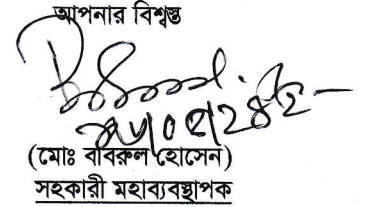 আপনার বিশ্বস্ত
(মোঃ বাবরুল হোসেন)
সহকারী মহাব্যবস্থাপক